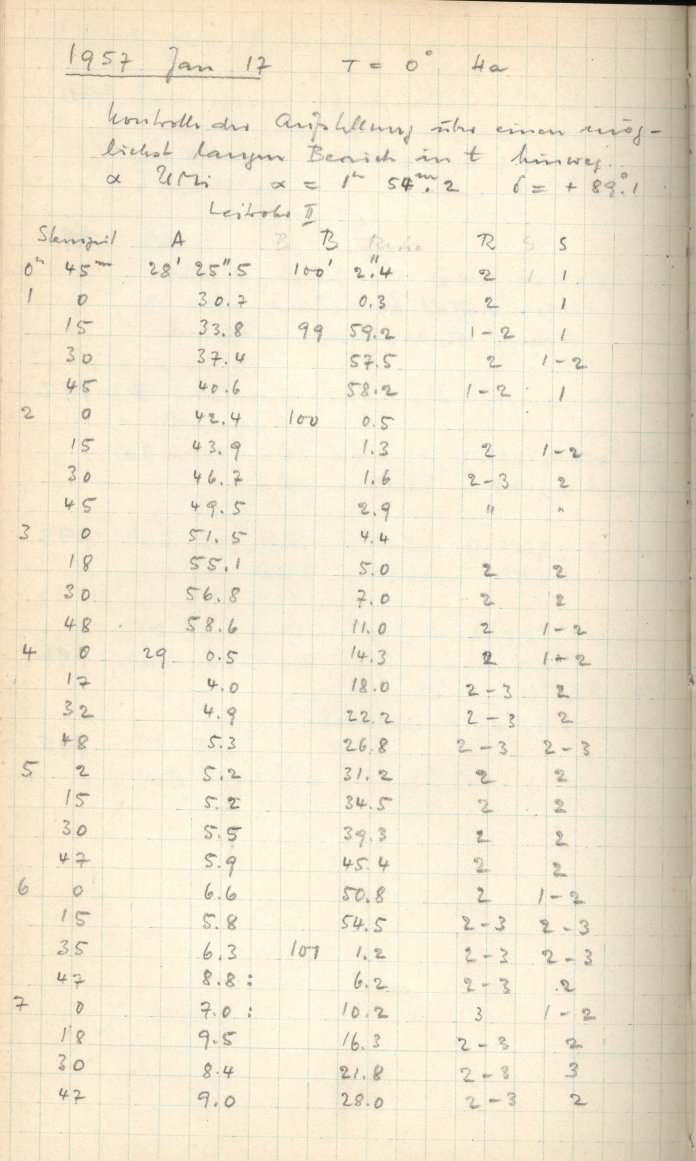 1957 Jan 17 T = 0° Ha
Kontrolle der Aufstellung über einen mög-
lichst langen Bereich in t hinweg.
α UMi α = 1h 54m.2 δ = + 89°.1
Leitrohr II
Sternzeit A B R S
0h 45m 28' 25".5 100' 2".4 2 1
1 0 30.7 0.3 2 1
15 33.8 99 59.2 1-2 1
30 37.4 57.5 2 1-2
45 40.6 58.2 1-2 1
2 0 42.4 100 0.5
15 43.9 1.3 2 1-2
30 46.7 1.6 2-3 2
45 49.5 2.9 " "
3 0 51.5 4.4
18 55.1 5.0 2 2
30 56.8 7.0 2 2
48 58.6 11.0 2 1-2
4 0 29 0.5 14.3 2 1-2
17 4.0 18.0 2-3 2
32 4.9 22.2 2-3 2
48 5.3 26.8 2-3 2-3
5 2 5.2 31.2 2 2
15 5.2 34.5 2 2
30 5.5 39.3 2 2
47 5.9 45.4 2 2
6 0 6.6 50.8 2 1-2
15 5.8 54.5 2-3 2-3
35 6.3 101 1.2 2-3 2-3
47 8.8: 6.2 2-3 2
7 0 7.0: 10.2 3 1-2
18 9.5 16.3 2-3 2
30 8.4 21.8 2-3 3
47 9.0 28.0 2-3 2